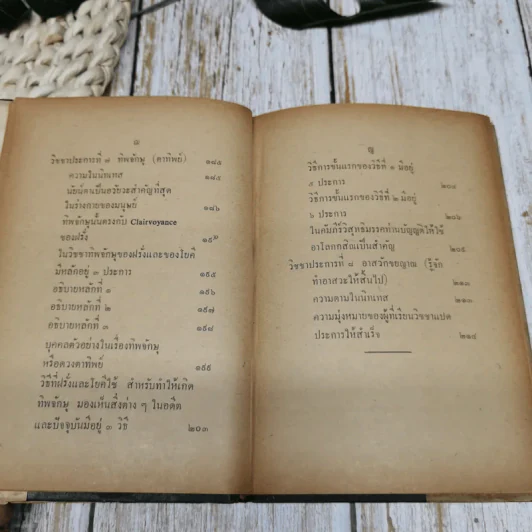 วิชชาประการที่ ๗ ทิพจักษุ (ตาทิพย์) ๑๘๔
ความในนิทเทส ๑๘๕
นัยน์ตาเป็นอวัยวะสำคัญที่สุด
ในร่างกายของมนุษย์ ๑๘๖
ทิพจักษุนั้นตรงกับ Clairvoyance
ของฝรั่ง
ในวิชชาทิพจักษุของฝรั่งและของโยคี
มีหลักอยู่ ๓ ประการ ๑๙๕
อธิบายหลักที่ ๑ ๑๙๖
อธิบายหลักที่ ๒ ๑๙๗
อธิบายหลักที่ ๓ ๑๙๘
บุคคลตัวอย่างในเรื่องทิพจักษุ
หรือดวงตาทิพย์ ๑๙๙
วิธีที่ฝรั่งและโยคีใช้ สำหรับทำให้เกิด
ทิพจักษุ มองเห็นสิ่งต่าง ๆ ในอดีต
และปัจจุบันมีอยู่ ๓ วิธี ๒๐๓
ญ
วิธีการขั้นแรกของวิธีที่ ๑ มีอยู่
๕ ประการ
วิธีการขั้นแรกของวิธีที่ ๒ มีอยู่
๖ ประการ
ในคัมภีร์วิสุทธิมรรคท่านบัญญัติให้ใช้
อาโลกกสิณเป็นสำคัญ ๒๐๙
วิชชาประการที่ ๘ อาสวักขยญาณ (รู้จัก
ทำอาสวะให้สิ้นไป)
ความตามในนิทเทส
ความมุ่งหมายของผู้ที่เรียนวิชชาแปด
ประการให้สำเร็จ ๒๑๔